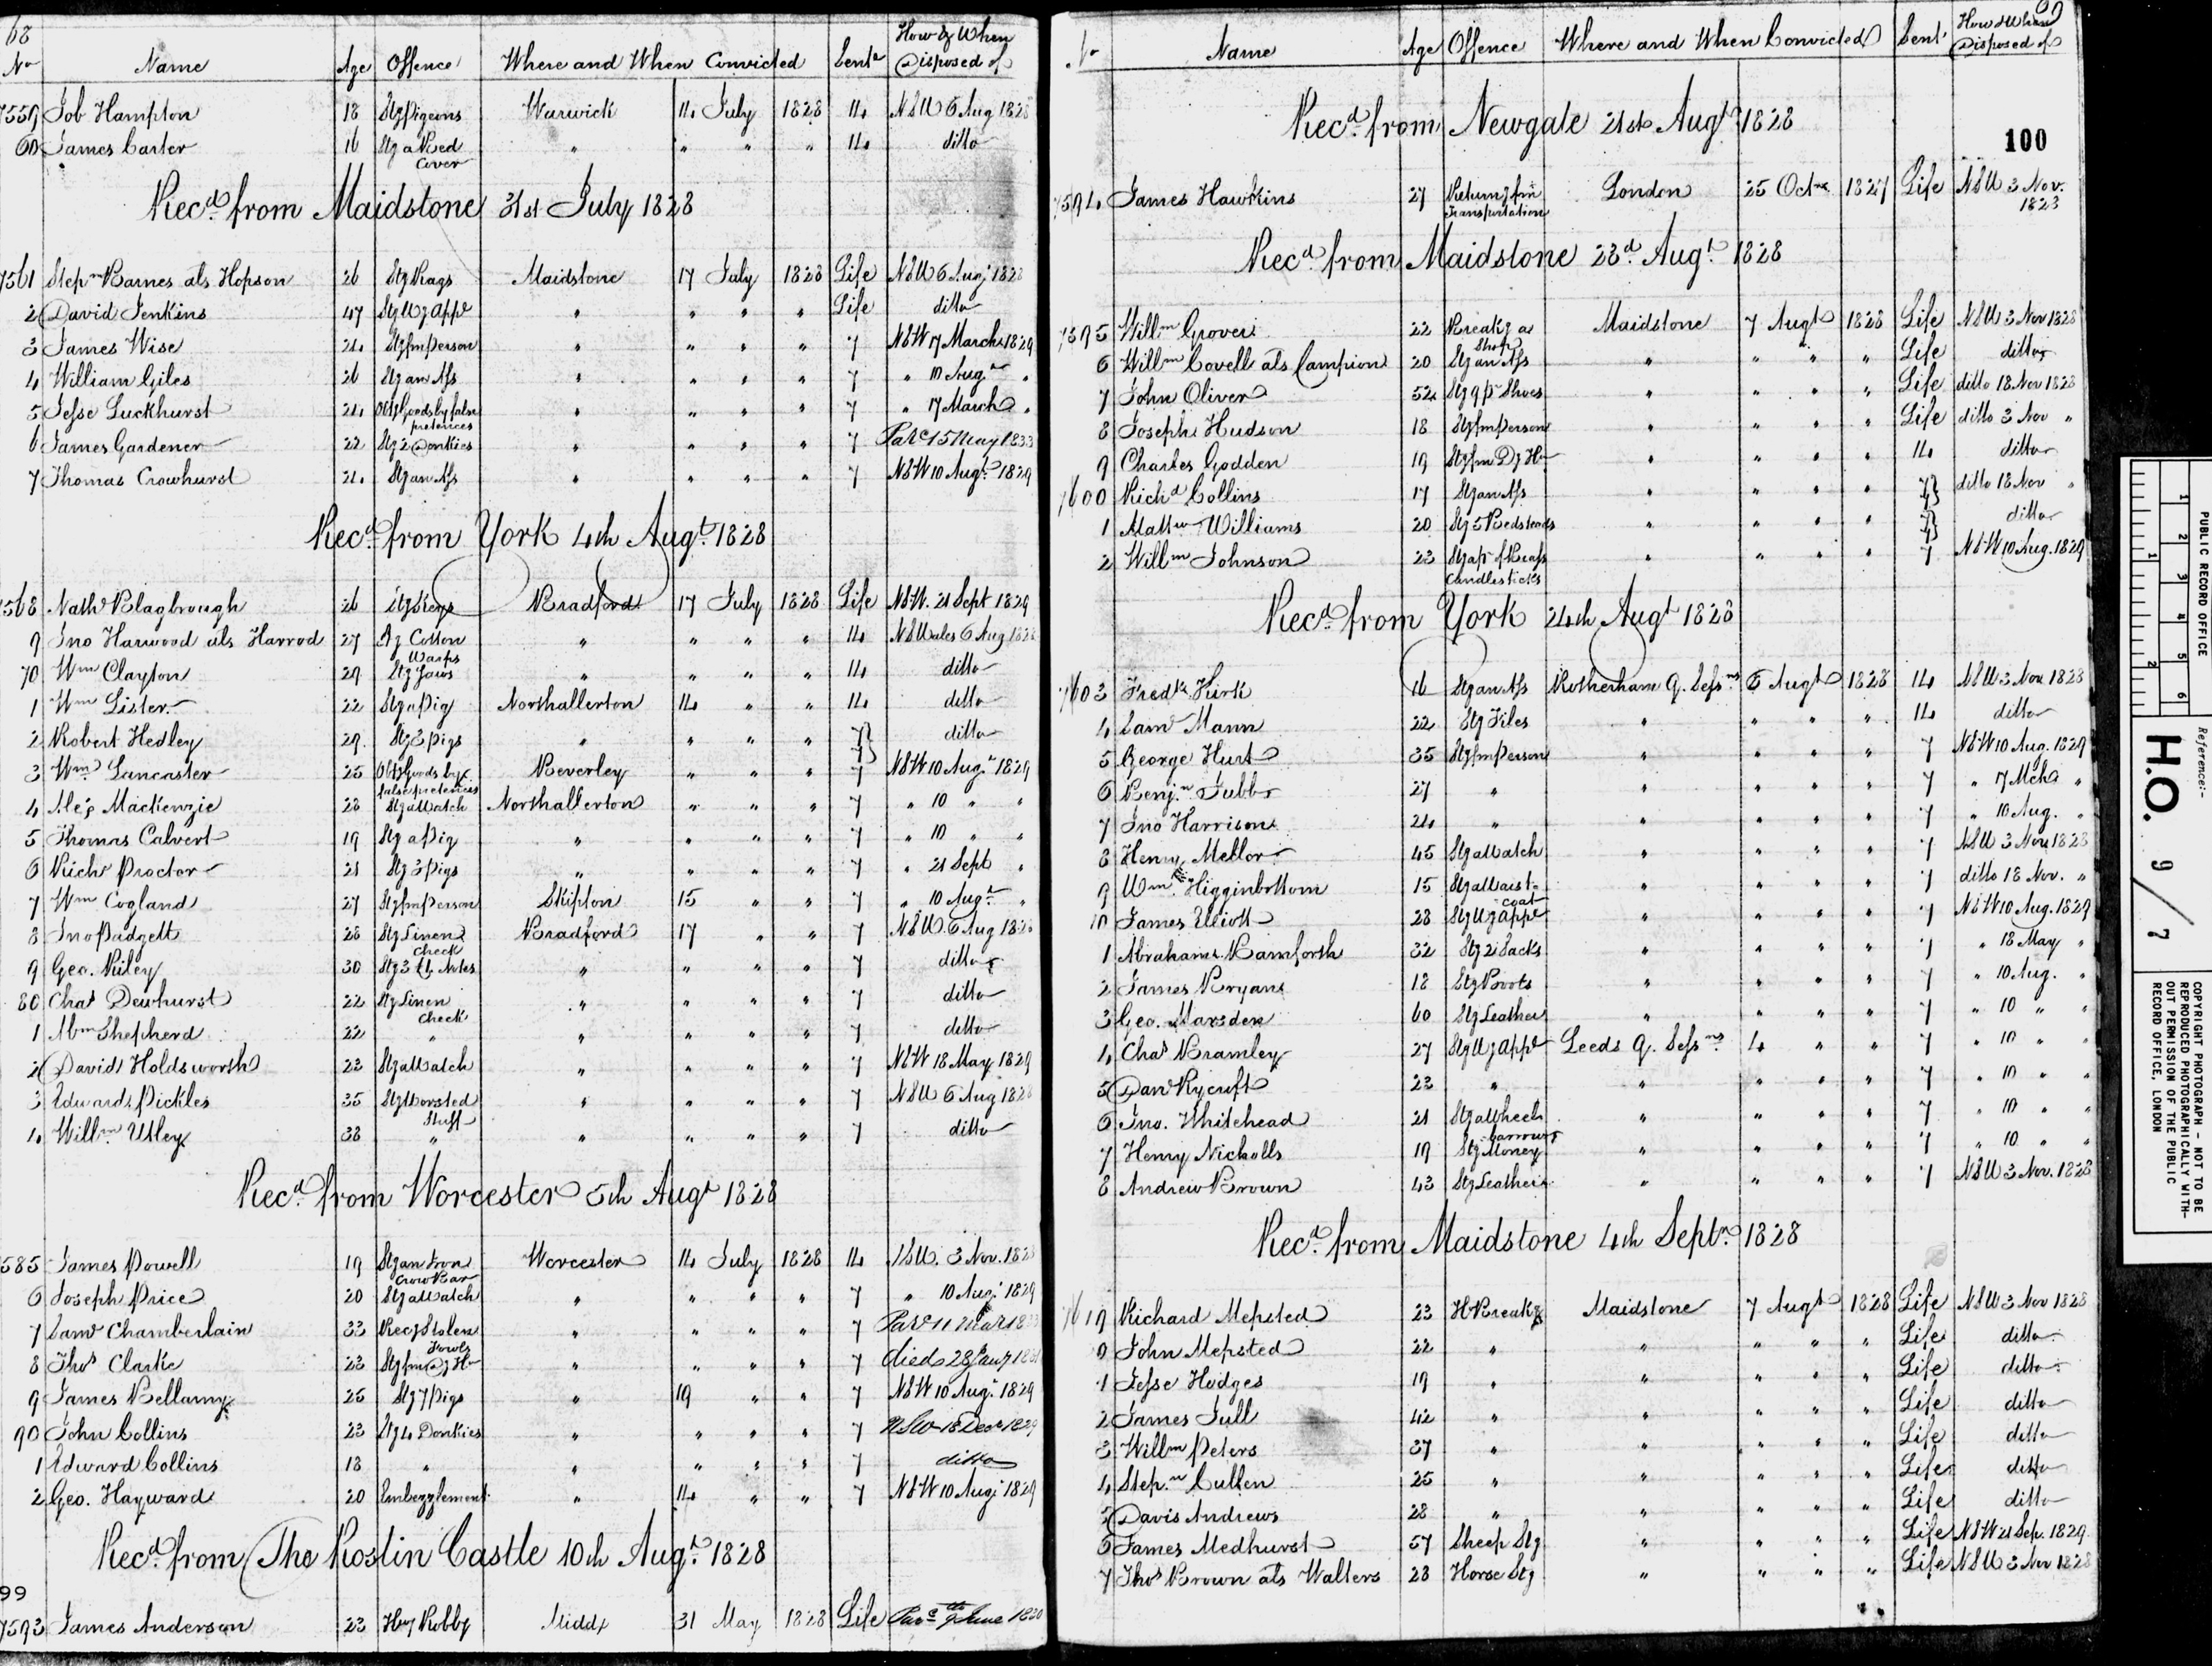 68
No Name Age Offence Where and When Convicted Sentce How & When Disposed of
7559 Job Hampton 18 Stg Pigeons Warwick 14 July 1828 14 NSW 6 Aug 1828
60 James Carter 16 Stg a Bed Cover " " " " 14 ditto
Recd from Maidstone 31st July 1828
7561 Stepn Barnes als Hopson 26 Stg Rags Maidstone 17 July 1828 Life NSW 6 Aug 1828
2 David Jenkins 47 Stg Wg Appl " " " " Life ditto
3 James Wise 24 Stg fm person " " " " 7 NSW 17 March 1829
4 William Giles 26 Stg an Ass " " " " 7 " 10 Augt "
5 Jesse Luckhurst 24 Obtg Goods by false pretences " " " " 7 " 17 March "
6 James Gardener 22 Stg 2 Donkies " " " " 7 Par 15 May 1833
7 Thomas Crowhurst 21 Stg an Ass " " " " 7 NSW 10 Augt 1829
Recd from York 4th Augt 1828
7568 Nathl Blagbrough 26 Stg Keys Bradford 17 July 1828 Life NSW 21 Sept 1829
9 Jno Harwood als Harrod 27 Stg Cotton Warps " " " " 14 NSWales 6 Aug 1828
70 Wm Clayton 29 Stg Saws " " " " 14 ditto
1 Wm Lister 22 Stg a Pig Northallerton 14 " " 14 ditto
2 Robert Hedley 29 Stg 3 Pigs " " " " 7} ditto
3 Wm Lancaster 25 Obtg Goods by false pretences Beverley " " " 7 NSW 10 Augt 1829
4 Alexr Mackenzie 28 Stg a Watch Northallerton " " " 7 " 10 " "
5 Thomas Calvert 19 Stg a Pig " " " " 7 " 10 " "
6 Richd Proctor 21 Stg 3 Pigs " " " " 7 " 21 Sept "
7 Wm Cogland 27 Stg fm Person Skipton 15 " " 7 " 10 Augt "
8 Jno Padgett 28 Stg Linen Check Bradford 17 " " 7 NSW 6 Aug 1828
9 Geo. Riley 30 Stg 3 £1 Notes " " " " 7 ditto
80 Chas Dewhurst 22 Stg Linen Check " " " " 7 ditto
1 Abm Shepherd 22 " " " " " 7 ditto
2 David Holdsworth 23 Stg a Watch " " " " 7 NSW 18 May 1829
3 Edward Pickles 35 Stg Worsted Stuff " " " " 7 NSW 6 Aug 1828
4 Willm Utley 38 " " " " " 7 ditto
Recd from Worcester 5th Augt 1828
7585 James Powell 19 Stg an Iron Crow Bar Worcester 14 July 1828 14 NSW. 3 Nov. 1828
6 Joseph Price 20 Stg a Watch " " " " 7 " 10 Augt 1829
7 Saml Chamberlain 33 Recg Stolen Fowls " " " " 7 Par 11 Mar
8 Thos Clarke 23 Stg fm Dg Ho " " " " 7 died 28 Jany
9 James Bellamy 25 Stg 7 Pigs " 19 " " 7 NSW 10 Augt 1829
90 John Collins 23 Stg 4 Donkies " " " " 7 NSW 18 Decr 1829
1 Edward Collins 18 " " " " " 7 ditto
2 Geo. Hayward 20 Embezzlement " 14 " " 7 NSW 10 Augt 1829
Recd from The Roslin Castle 10th Augt 1828
99
7593 James Anderson 23 Hwy Robby Middx 31 May 1828 Life Par 9th June 1830
69
No Name Age Offence Where and When Convicted Sent How & When Disposed of
Recd from Newgate 21st Augt 1828
100
7594 James Hawkins 27 Returng fm Transportation London 25 Octr 1827 Life NSW 3 Nov. 1828
Recd from Maidstone 23d Augt 1828
7595 Willm Grover 22 Breakg a Shop Maidstone 7 Augt 1828 Life NSW 3 Nov 1828
6 Willm Covell als Campion 20 Stg an Ass " " " " Life ditto
7 John Oliver 52 Stg 9 pr Shoes " " " " Life ditto 18 Nov 1828
8 Joseph Hudson 18 Stg fm person " " " " Life ditto 3 Nov "
9 Charles Godden 19 Stg fm Dg Ho " " " " 14 ditto
7600 Richd Collins 17 Stg an Ass " " " " 7} ditto 18 Nov "
1 Matthw Williams 20 Stg 5 Bedsteads " " " " 7} ditto
2 Willm Johnson 23 Stg a pr of Brass Candlesticks " " " " 7 NSW 10 Aug. 1829
Recd from York 24th Augt 1828
7603 Fredk Kirk 16 Stg an Ass Rotherham Q. Sessns 6 Augt 1828 14 NSW 3 Nov 1828
4 Saml Mann 22 Stg Files " " " " 14 ditto
5 George Hurt 35 Stg fm person " " " " 7 NSW 10 Aug. 1829
6 Benjn Tubb 27 " " " " " 7 " 17 Mch "
7 Jno Harrison 24 " " " " " 7 " 10 Aug. "
8 Henry Mellor 45 Stg a Watch " " " " 7 NSW 3 Nov 1828
9 Wm Higginbottom 15 Stg a Waistcoat " " " " 7 ditto 18 Nov. "
10 James Elliott 28 Stg Wg Appl " " " " 7 NSW 10 Aug. 1829
1 Abraham Bamforth 32 Stg 2 Sacks " " " " 7 " 18 May "
2 James Bryan 18 Stg Boots " " " " 7 " 10 Aug. "
3 Geo. Marsden 60 Stg Leather " " " " 7 " 10 " "
4 Chas Bramley 27 Stg Wg Appl Leeds Q. Sessns 4 " " 7 " 10 " "
5 Danl Rycroft 23 " " " " " 7 " 10 " "
6 Jno. Whitehead 21 Stg a Wheel barrow " " " " 7 " 10 " "
7 Henry Nicholls 19 Stg Money " " " " 7 " 10 " "
8 Andrew Brown 43 Stg Leather " " " " 7 NSW 3 Nov. 1828
Recd from Maidstone 4th Septr 1828
7619 Richard Mepsted 23 H Breakg Maidstone 7 Augt 1828 Life NSW 3 Nov 1828
0 John Mepsted 22 " " " " " Life ditto
1 Jesse Hodges 19 " " " " " Life ditto
2 James Tull 42 " " " " " Life ditto
3 Willm Peters 37 " " " " " Life ditto
4 Stepn Cullen 25 " " " " " Life ditto
5 Davis Andrews 28 " " " " " Life ditto
6 James Medhurst 57 Sheep Stg " " " " Life NSW 21 Sep. 1829
7 Thos Brown als Walters 28 Horse Stg " " " " Life NSW 3 Nov 1828
PUBLIC RECORD OFFICE
1 2 3 4 5 6
1 2
Reference:-
H.O. 9/7
COPYRIGHT PHOTOGRAPH - NOT TO BE
REPRODUCED PHOTOGRAPHICALLY WITH-
OUT PERMISSION OF THE PUBLIC
RECORD OFFICE, LONDON